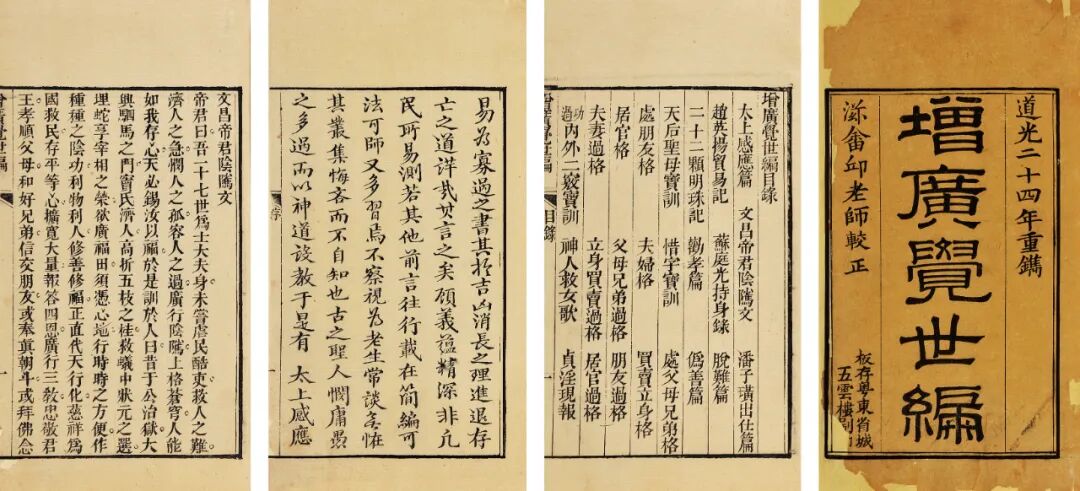 道光二十四年重鐫
畬邱老師較正
增廣覺世編
板存粵東省城
五雲樓
增廣覺世編目錄
太上感應篇 文昌帝君陰騭文 潘子璜出仕篇
趙英揚貿易記 蘇庭光持身錄 脫難篇
二十二顆明珠記 勸孝篇 僞善篇
天后聖母寶訓 惜字寶訓 處父母兄弟格
處朋友格 夫婦格 買賣立身格
居官格 父母兄弟過格 朋友過格
夫妻過格 立身買賣過格 居官過格
功過內外二竅寶訓 神人救女歌 貞淫現報
目錄
一
易為寡過之書其於吉凶消長之理進退存
亡之道詳哉其言之矣顧義蘊精深非凢
民所易測若其他前言往行載在簡編可
法可師又多習焉不察視為老生常談無怪
其叢集悔吝而不自知也古之聖人憫庸愚
之多過而以神道設教于是有 太上感應
序
文昌帝君陰隲文
帝君曰吾一十七世爲士大夫身未嘗虐民酷吏救人之難
濟人之急憫人之孤容人之過廣行陰隲上格蒼穹人能
如我存心天必錫汝以福於是訓於人曰昔于公治獄大
興駟馬之門竇氏濟人高折五枝之桂救蟻中狀元之選
埋蛇享宰相之榮欲廣福田須憑心地行時時之方便作
種種之陰功利物利人修善修福正直代天行化慈祥爲
國救民存平等心擴寬大量報答四恩廣行三教忠敬君
王孝順父母和好兄弟信交朋友或奉真朝斗或拜佛念
一